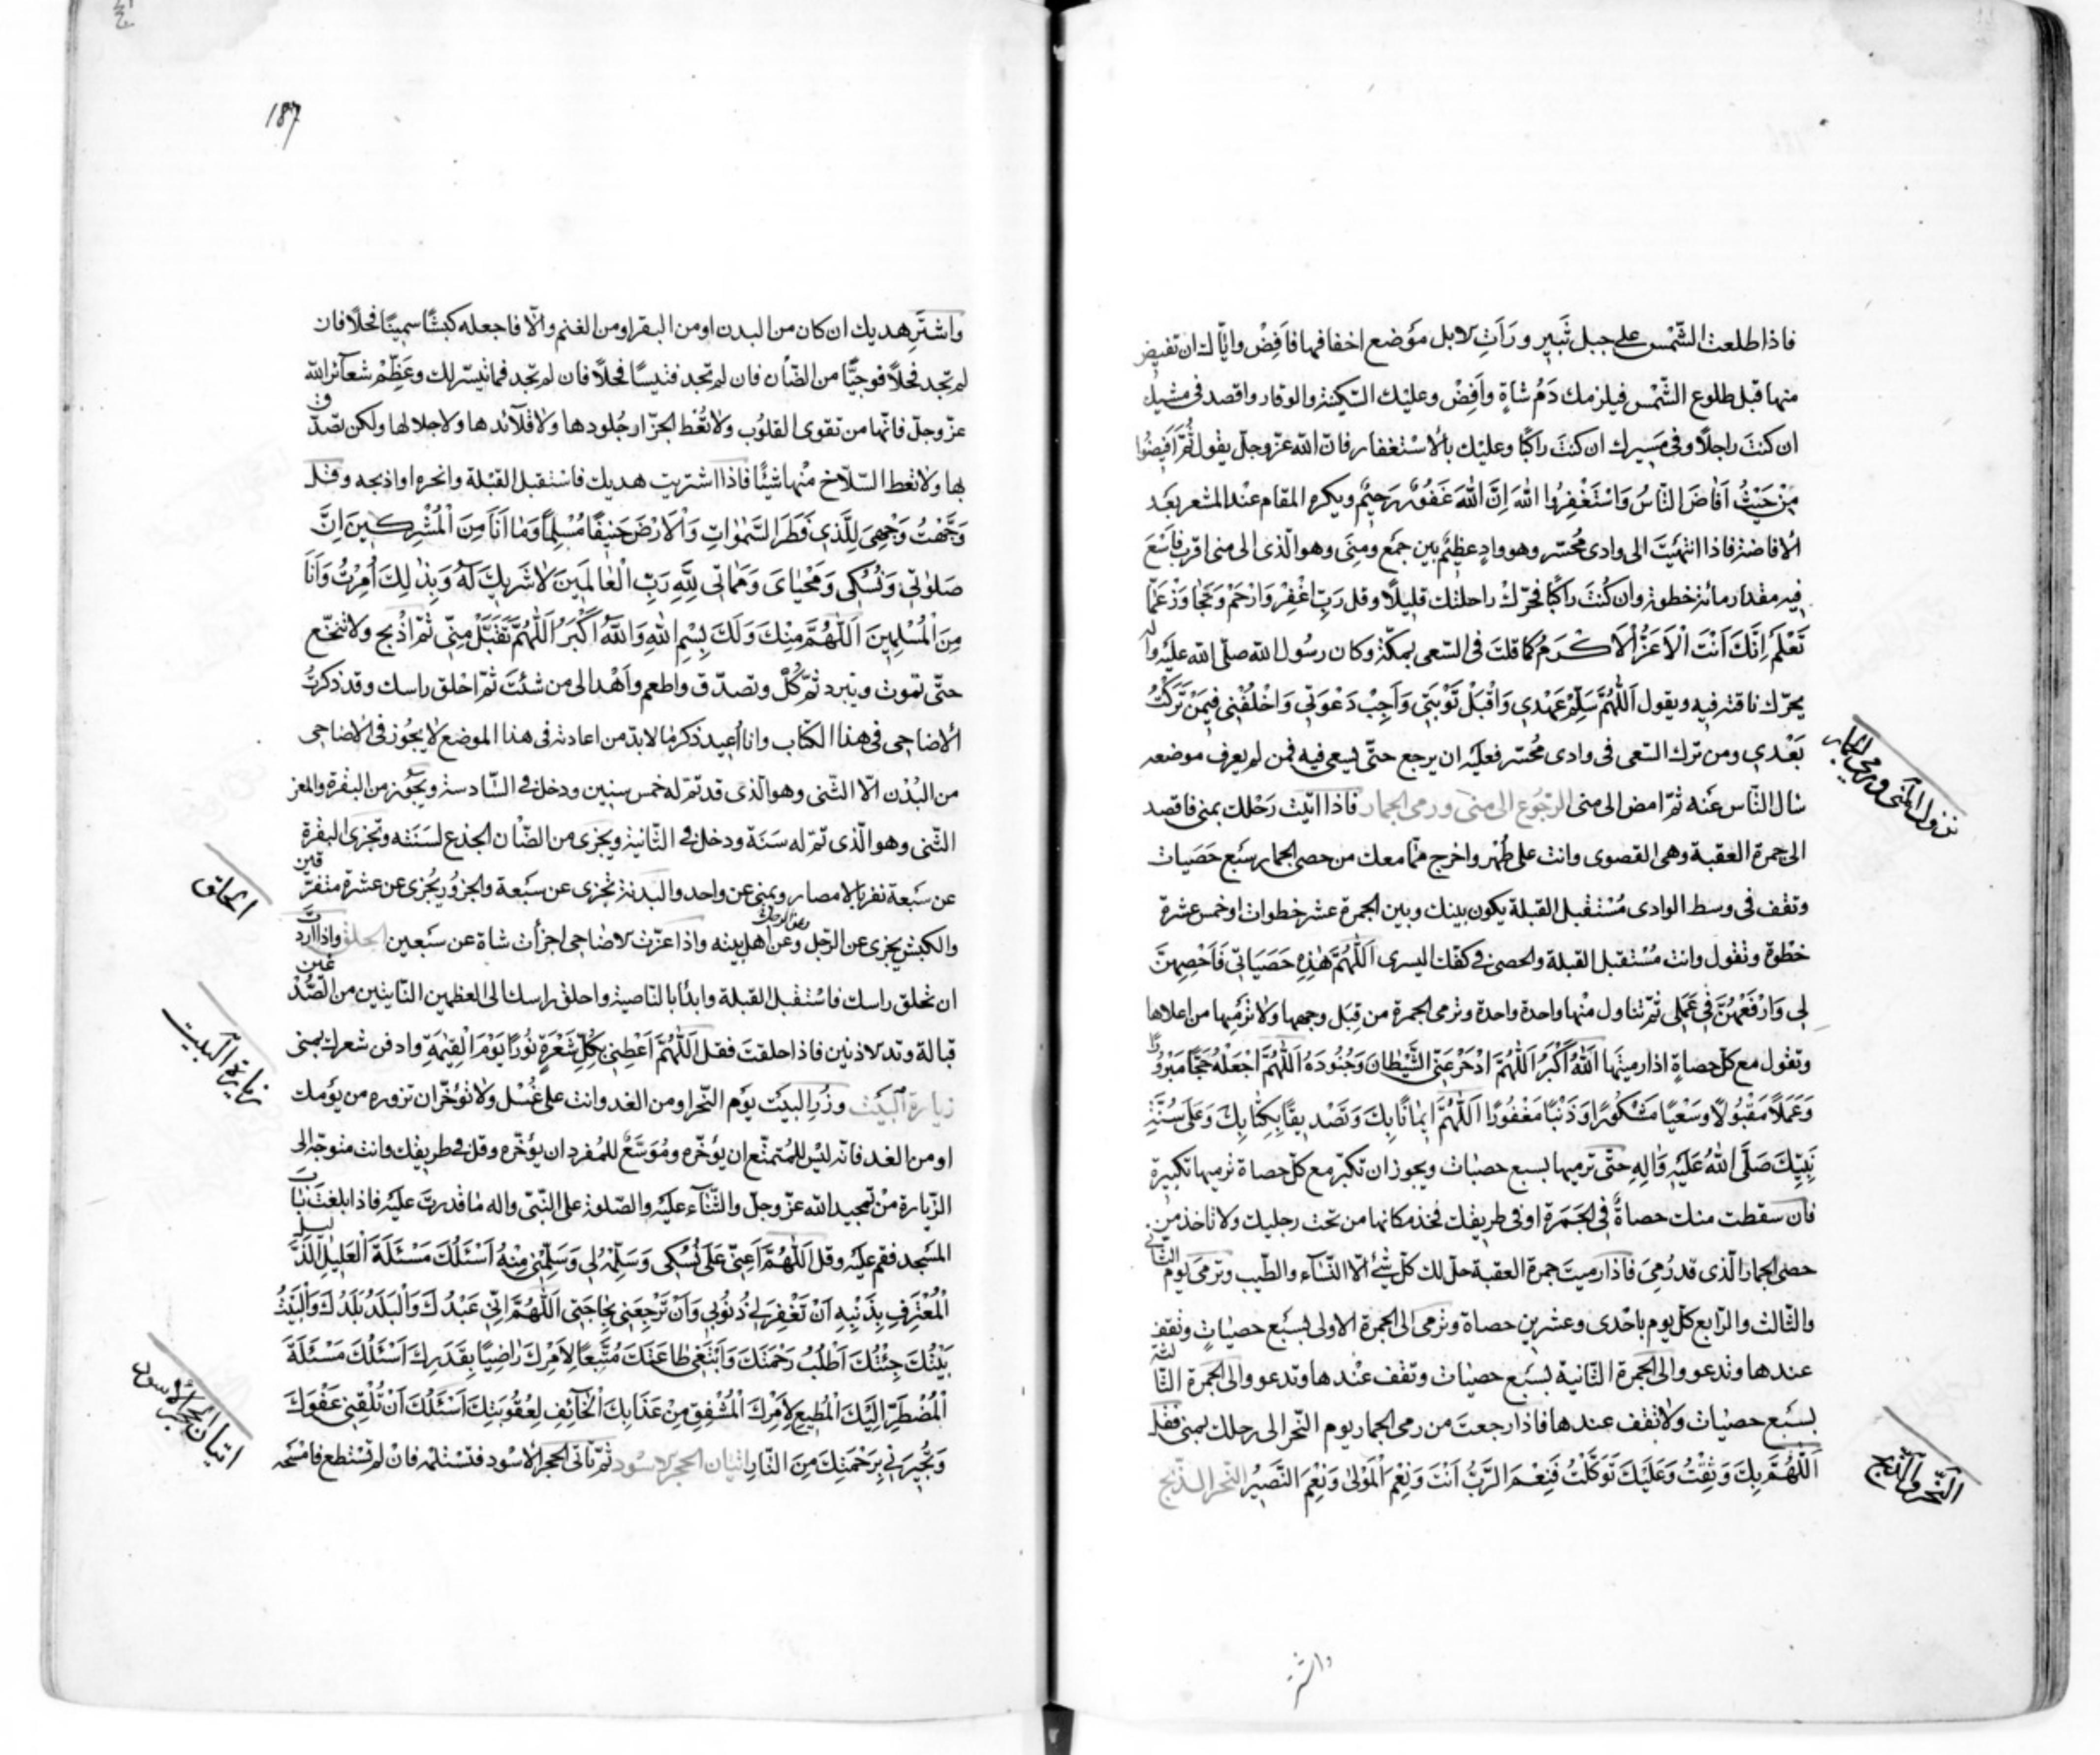 فاذا طلعت الشّمْس على جبل ثَبِيرٍ ورَأتِ الابل مَوْضع اخفافها فاَفِضْ وايّاك ان تفيض
منها قبل طلوع الشّمْس فيلزمك دَمُ شاةٍ واَفِضْ وعليك السّكينة والوقار واقصد فى مشيك
ان كنتَ راجلًا وفى مَسِيرك ان كنتَ راكبًا وعليك بالاسْتغفار فانّ الله عزّ وجلّ يقول ثُمَّ اَفِيضُوا
مِنْ حَيْثُ اَفَاضَ النّاسُ وَاسْتَغْفِرُوا اللهَ اِنَّ اللهَ غَفُورٌ رَحِيمٌ ويكره المقام عنْد المشعر بعَد
الافاضة فاذا انتهيْتَ الى وادى مُحَسّر وهو وادٍ عظيْم بين جمْع ومنَى وهو الّذى الى منى اقرب فاَسْعَ
فيه مقدار مائة خطوة وان كُنتَ راكبًا فحرّكْ راحلتك قليلًا وقل رَبِّ اغْفِرْ وَارْحَمْ وَتَجَاوَزْ عَمّا
تَعْلَمُ اِنَّكَ اَنْتَ الْاَعَزُّ الْاَكْرَمُ كما قلتَ فى السّعى بمكّة وكان رسُول الله صلّى الله عليْه واله
يحرّك ناقته فيه ويقول اَللّٰهُمَّ سَلِّمْ عَهْدِي وَاقْبَلْ تَوْبَتِي وَاَجِبْ دَعْوَتِي وَاخْلُفْنِي فِيمَنْ تَرَكْتُ
بَعْدِي ومن ترك السّعى فى وادى مُحَسّر فعليْه ان يرجع حتّى يسعى فيه فمن لم يعرف موضعه
سال النّاس عنْه ثمّ امض الى منى الرجُوع الى منى ورمى الجمار فاذا اتيْت رَحْلك بمنى فاقصد
الى جمرة العقبة وهى القصوى وانت على طُهر واخرج ممّا معك من حصى الجمار سبْع حَصَيات
وتقف فى وسط الوادى مُسْتقبل القبلة يكون بينك وبين الجمرة عشر خطوات او خمس عشرة
خطْوة وتقول وانت مُسْتقبل القبلة والحصى فى كفّك اليسرى اَللّٰهُمَّ هٰذِهِ حَصَيَاتِي فَاَحْصِهِنَّ
لِي وَارْفَعْهُنَّ فِي عَمَلِي ثمّ تتناول منْها واحدة واحدة وترمى الجمرة من قِبَل وجهها ولا ترْمِها من اعلاها
وتقول مع كلّ حصاةٍ اذا رميتها اَللهُ اَكْبَرُ اَللّٰهُمَّ ادْحَرْ عَنِّي الشَّيْطَانَ وَجُنُودَهُ اَللّٰهُمَّ اجْعَلْهُ حَجًّا مَبْرُورًا
وَعَمَلًا مَقْبُولًا وَسَعْيًا مَشْكُورًا وَذَنْبًا مَغْفُورًا اَللّٰهُمَّ اِيمَانًا بِكَ وَتَصْدِيقًا بِكِتَابِكَ وَعَلَى سُنَّةِ
نَبِيِّكَ صَلَّى اللهُ عَلَيْهِ وَالِهِ حتّى ترميها بسبع حصيات ويجوز ان تكبّر مع كلّ حصاة ترميها تكبيرة
فان سقطت منك حصاةٌ فى الجَمَرة او فى طريقك فخذ مكانها من تحت رجليك ولا تاخذ من
حصى الجمار الّذى قد رُمِىَ فاذا رميتَ جمرة العقبة حلّ لك كلّ شئ الّا النّسَاء والطّيب وترمى يوم الثانى
والثّالث والرّابع كلّ يوم باحْدى وعشرين حصاة وترمى الى الجمرة الاولى بسبْع حصيَاتٍ وتقف
عندها وتدعو والى الجمرة الثّانية بسبْع حصيات وتقف عنْدها وتدعو والى الجمرة الثّالثة
بسبْع حصيات ولا تقف عندها فاذا رجعتَ من رمى الجمار يوم النّحر الى رحلك بمنى فقل
اَللّٰهُمَّ بِكَ وَثِقْتُ وَعَلَيْكَ تَوَكَّلْتُ فَنِعْمَ الرَّبُّ اَنْتَ وَنِعْمَ الْمَوْلٰى وَنِعْمَ النَّصِيرُ النّحر الذّبح
نزول المنى ورمى الجمار
النّحر والذّبح
واشتر
187
واشتَرِ هديك ان كان من البدن او من البقر او من الغنم والّا فاجعله كبْشًا سمِينًا فحْلًا فان
لم تجد فحلًا فموجيًّا من الضّأن فان لم تجد فتيسًا فحلًا فان لم تجد فما تيسّر لك وعَظِّمْ شعآئر الله
عزّ وجلّ فانّها من تقوى القلوُب ولا تُعْط الجزّار جُلودها ولا قلآئدها ولا جلالها ولكن تصّدّق
بها ولا تعط السّلّاخ منْها شيْئًا فاذا اشتريت هديك فاسْتقبل القبْلة وانحره او اذبحه وقل
وَجَّهْتُ وَجْهِيَ لِلَّذِي فَطَرَ السَّمٰوَاتِ وَالْاَرْضَ حَنِيفًا مُسْلِمًا وَمَا اَنَا مِنَ الْمُشْرِكِينَ اِنَّ
صَلوٰتِي وَنُسُكِي وَمَحْيَايَ وَمَمَاتِي لِلّٰهِ رَبِّ الْعَالَمِينَ لَا شَرِيكَ لَهُ وَبِذٰلِكَ اُمِرْتُ وَاَنَا
مِنَ الْمُسْلِمِينَ اَللّٰهُمَّ مِنْكَ وَلَكَ بِسْمِ اللهِ وَاللهُ اَكْبَرُ اَللّٰهُمَّ تَقَبَّلْ مِنِّي ثمّ اذْبح ولا تنخّع
حتّى تموت وتبرد ثمّ كُلْ وتصدّق واطعم واَهْد الى من شئتَ ثمّ احْلق راسك وقد ذكرتُ
الاضاحى فى هذا الكتاب وانا اُعِيد ذكر ما لابدّ من اعادته فى هذا الموضع لا يجُوز فى الاضاحى
من البُدْن الّا الثّنى وهو الّذى قد تمّ له خمس سِنِين ودخل فى السّادسة ويَجُوز من البقرة والمعز
الثّنى وهو الّذى تمّ له سَنَة ودخل فى الثّانية ويجْزى من الضّأن الجذع لسَنَته وتجْزى البقْرة
عن سَبعة نفر بالامصار وبمنى عن واحد والبدنة تجْزى عن سَبعة والجزُور يُجْزى عن عشرة متفرّقين
والكبش يجزى عن الرّجل وعن اهل بيته واذا عزّت الاضاحى اجزأت شاة عن سَبعين الحلق واذا اردت
ان تحلق راسك فاسْتقبل القبلة وابدأ بالناصية واحلق راسك الى العظمين النّابتين من الصُّدْغين
قبالة وتد الاذنين فاذا حلقتَ فقل اَللّٰهُمَّ اَعْطِنِي بِكُلِّ شَعْرَةٍ نُورًا يَوْمَ الْقِيٰمَةِ وادفن شعرك بمنى
زيارة البيْت وزُرِ البيْت يَوْم النّحر او من الغد وانت على غُسْل ولا تؤخّر ان تزوره من يَوْمك
او من الغد فانّه ليْس للمُتمتّع ان يؤخّره ومُوَسَّعٌ للمُفرد ان يؤخّره وقل فى طريقك وانت متوجّه الى
الزّيارة مِنْ تمجيد الله عزّ وجلّ والثّنآء عليْه والصّلوة على النّبىّ واله ما قدرتَ عليْه فاذا بلغتَ باب
المسْجد فقم عليْه وقل اَللّٰهُمَّ اَعِنِّي عَلَى نُسُكِي وَسَلِّمْهُ لِي وَسَلِّمْنِي مِنْهُ اَسْئَلُكَ مَسْئَلَةَ الْعَلِيلِ الذَّلِيلِ
الْمُعْتَرِفِ بِذَنْبِهِ اَنْ تَغْفِرَ لِي ذُنُوبِي وَاَنْ تَرْجِعَنِي بِحَاجَتِي اَللّٰهُمَّ اِنِّي عَبْدُكَ وَالْبَلَدُ بَلَدُكَ وَالْبَيْتُ
بَيْتُكَ جِئْتُكَ اَطْلُبُ رَحْمَتَكَ وَاَبْتَغِي طَاعَتَكَ مُتَّبِعًا لِاَمْرِكَ رَاضِيًا بِقَدَرِكَ اَسْئَلُكَ مَسْئَلَةَ
الْمُضْطَرِّ اِلَيْكَ الْمُطِيعِ لِاَمْرِكَ الْمُشْفِقِ مِنْ عَذَابِكَ الْخَائِفِ لِعُقُوبَتِكَ اَسْئَلُكَ اَنْ تُلَقِّيَنِي عَفْوَكَ
وَتُجِيرَنِي بِرَحْمَتِكَ مِنَ النَّارِ اتيان الحجر الاسود ثمّ تأتى الحجر الاسْود فتسْتلمه فانْ لم تسْتطع فامْسَحه
الحلق
زيارة البيت
اتيان الحجر الاسود